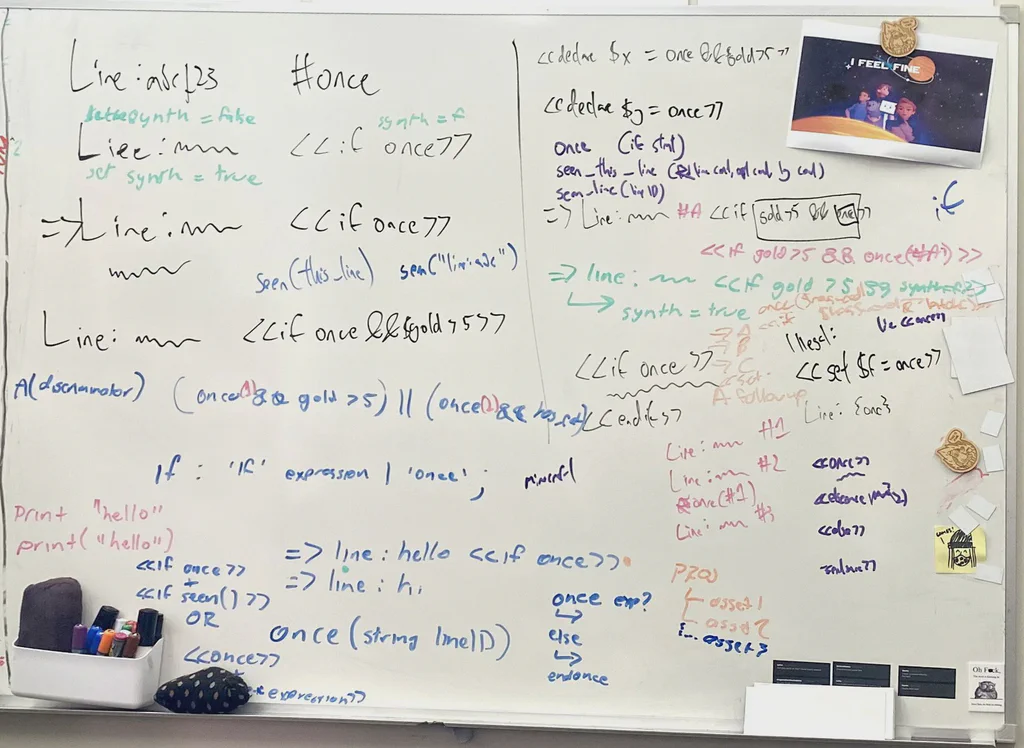 Line: abc123 #once
synth = false
synth = f
Line: <<if once>>
set synth = true
=> Line: <<if once>>
seen(this_line) seen("line:abc")
Line: <<if once && $gold >5>>
A(discriminator)
(once(1) && gold >5) || (once(2) &&
If : 'If' expression | 'once' ;
print "hello"
print("hello")
<<if once>>
+
<<if seen()>>
OR
<<once>>
expression>>
=> line: hello <<if once>>
=> line: hi
once(string lineID)
once exp?
↳
else
↳
endonce
<<declare $x = once && $gold >5>>
<<declare $y = once>>
once (if stmt)
seen_this_line
seen_line(line ID)
=> Line: #A <<if gold >5 && once>>
if
<<if gold >5 && once(#A)>>
=> line: <<if gold >5 &&
↳ synth = true
<<if once>>
<<endif>>
A
B
C
A followup
Illegal:
<<set $f = once>>
Line: {once}
Line: #1
Line: #2
once(#1)
Line: #3
<<once>>
<<else>>
asset 1
asset 2
asset 3
I FEEL FINE